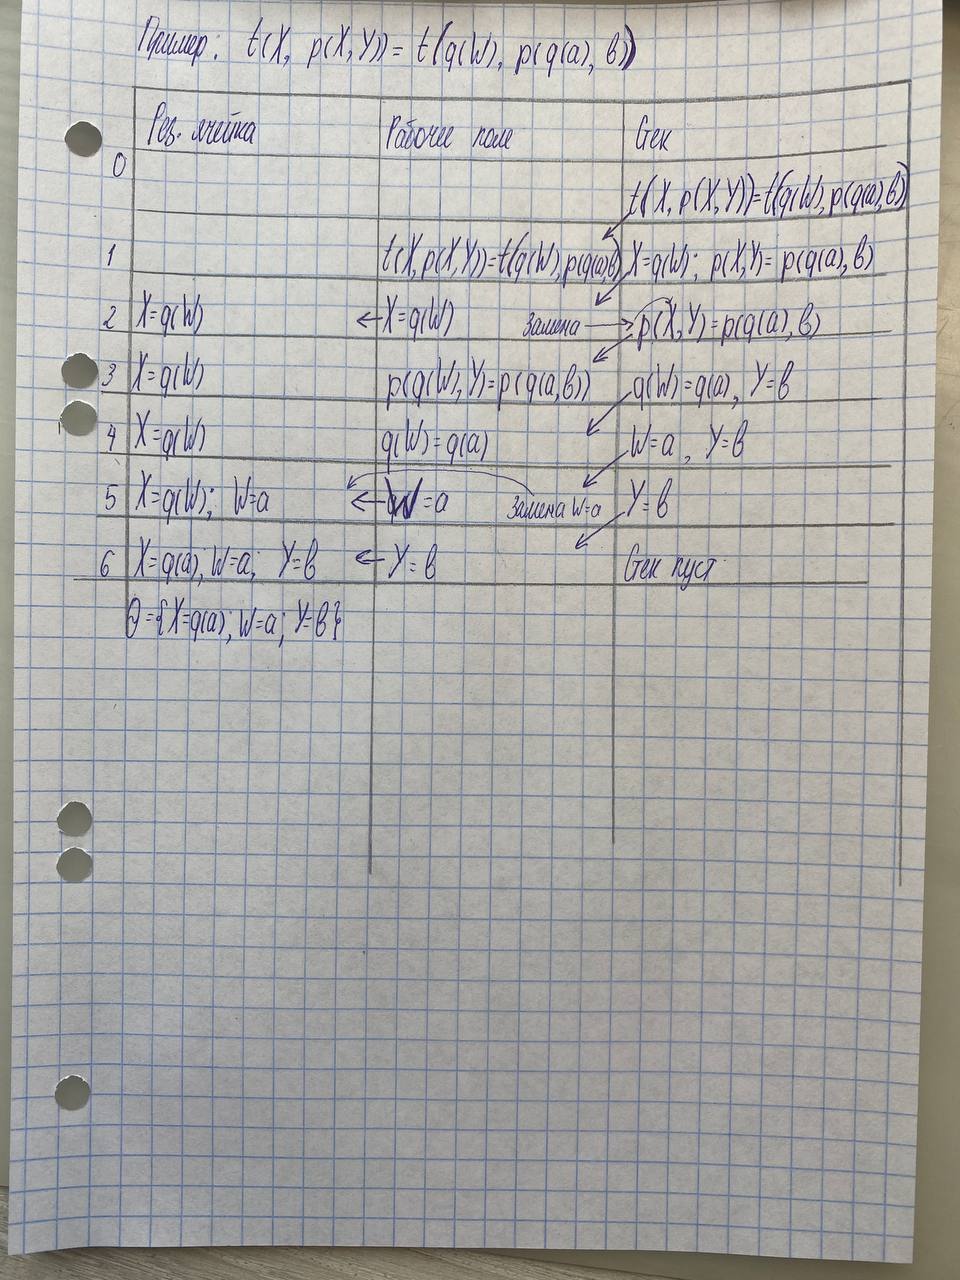 Пример: t(X, p(X,Y)) = t(q(W), p(q(a), в))
Рез. ячейка Рабочее поле Стек
0 t(X, p(X,Y))=t(q(W), p(q(a),в))
1 t(X,p(X,Y))=t(q(W),p(q(a),в) X=q(W); p(X,Y)= p(q(a), в)
2 X=q(W) ← X=q(W) Замена → p(X,Y)=p(q(a), в)
3 X=q(W) p(q(W),Y)=p(q(a,в)) q(W)=q(a), Y=в
4 X=q(W) q(W)=q(a) W=a, Y=в
5 X=q(W); W=a ← W=a Замена W=a Y=в
6 X=q(a); W=a; Y=в ← Y=в Стек пуст
Θ={X=q(a); W=a; Y=в}